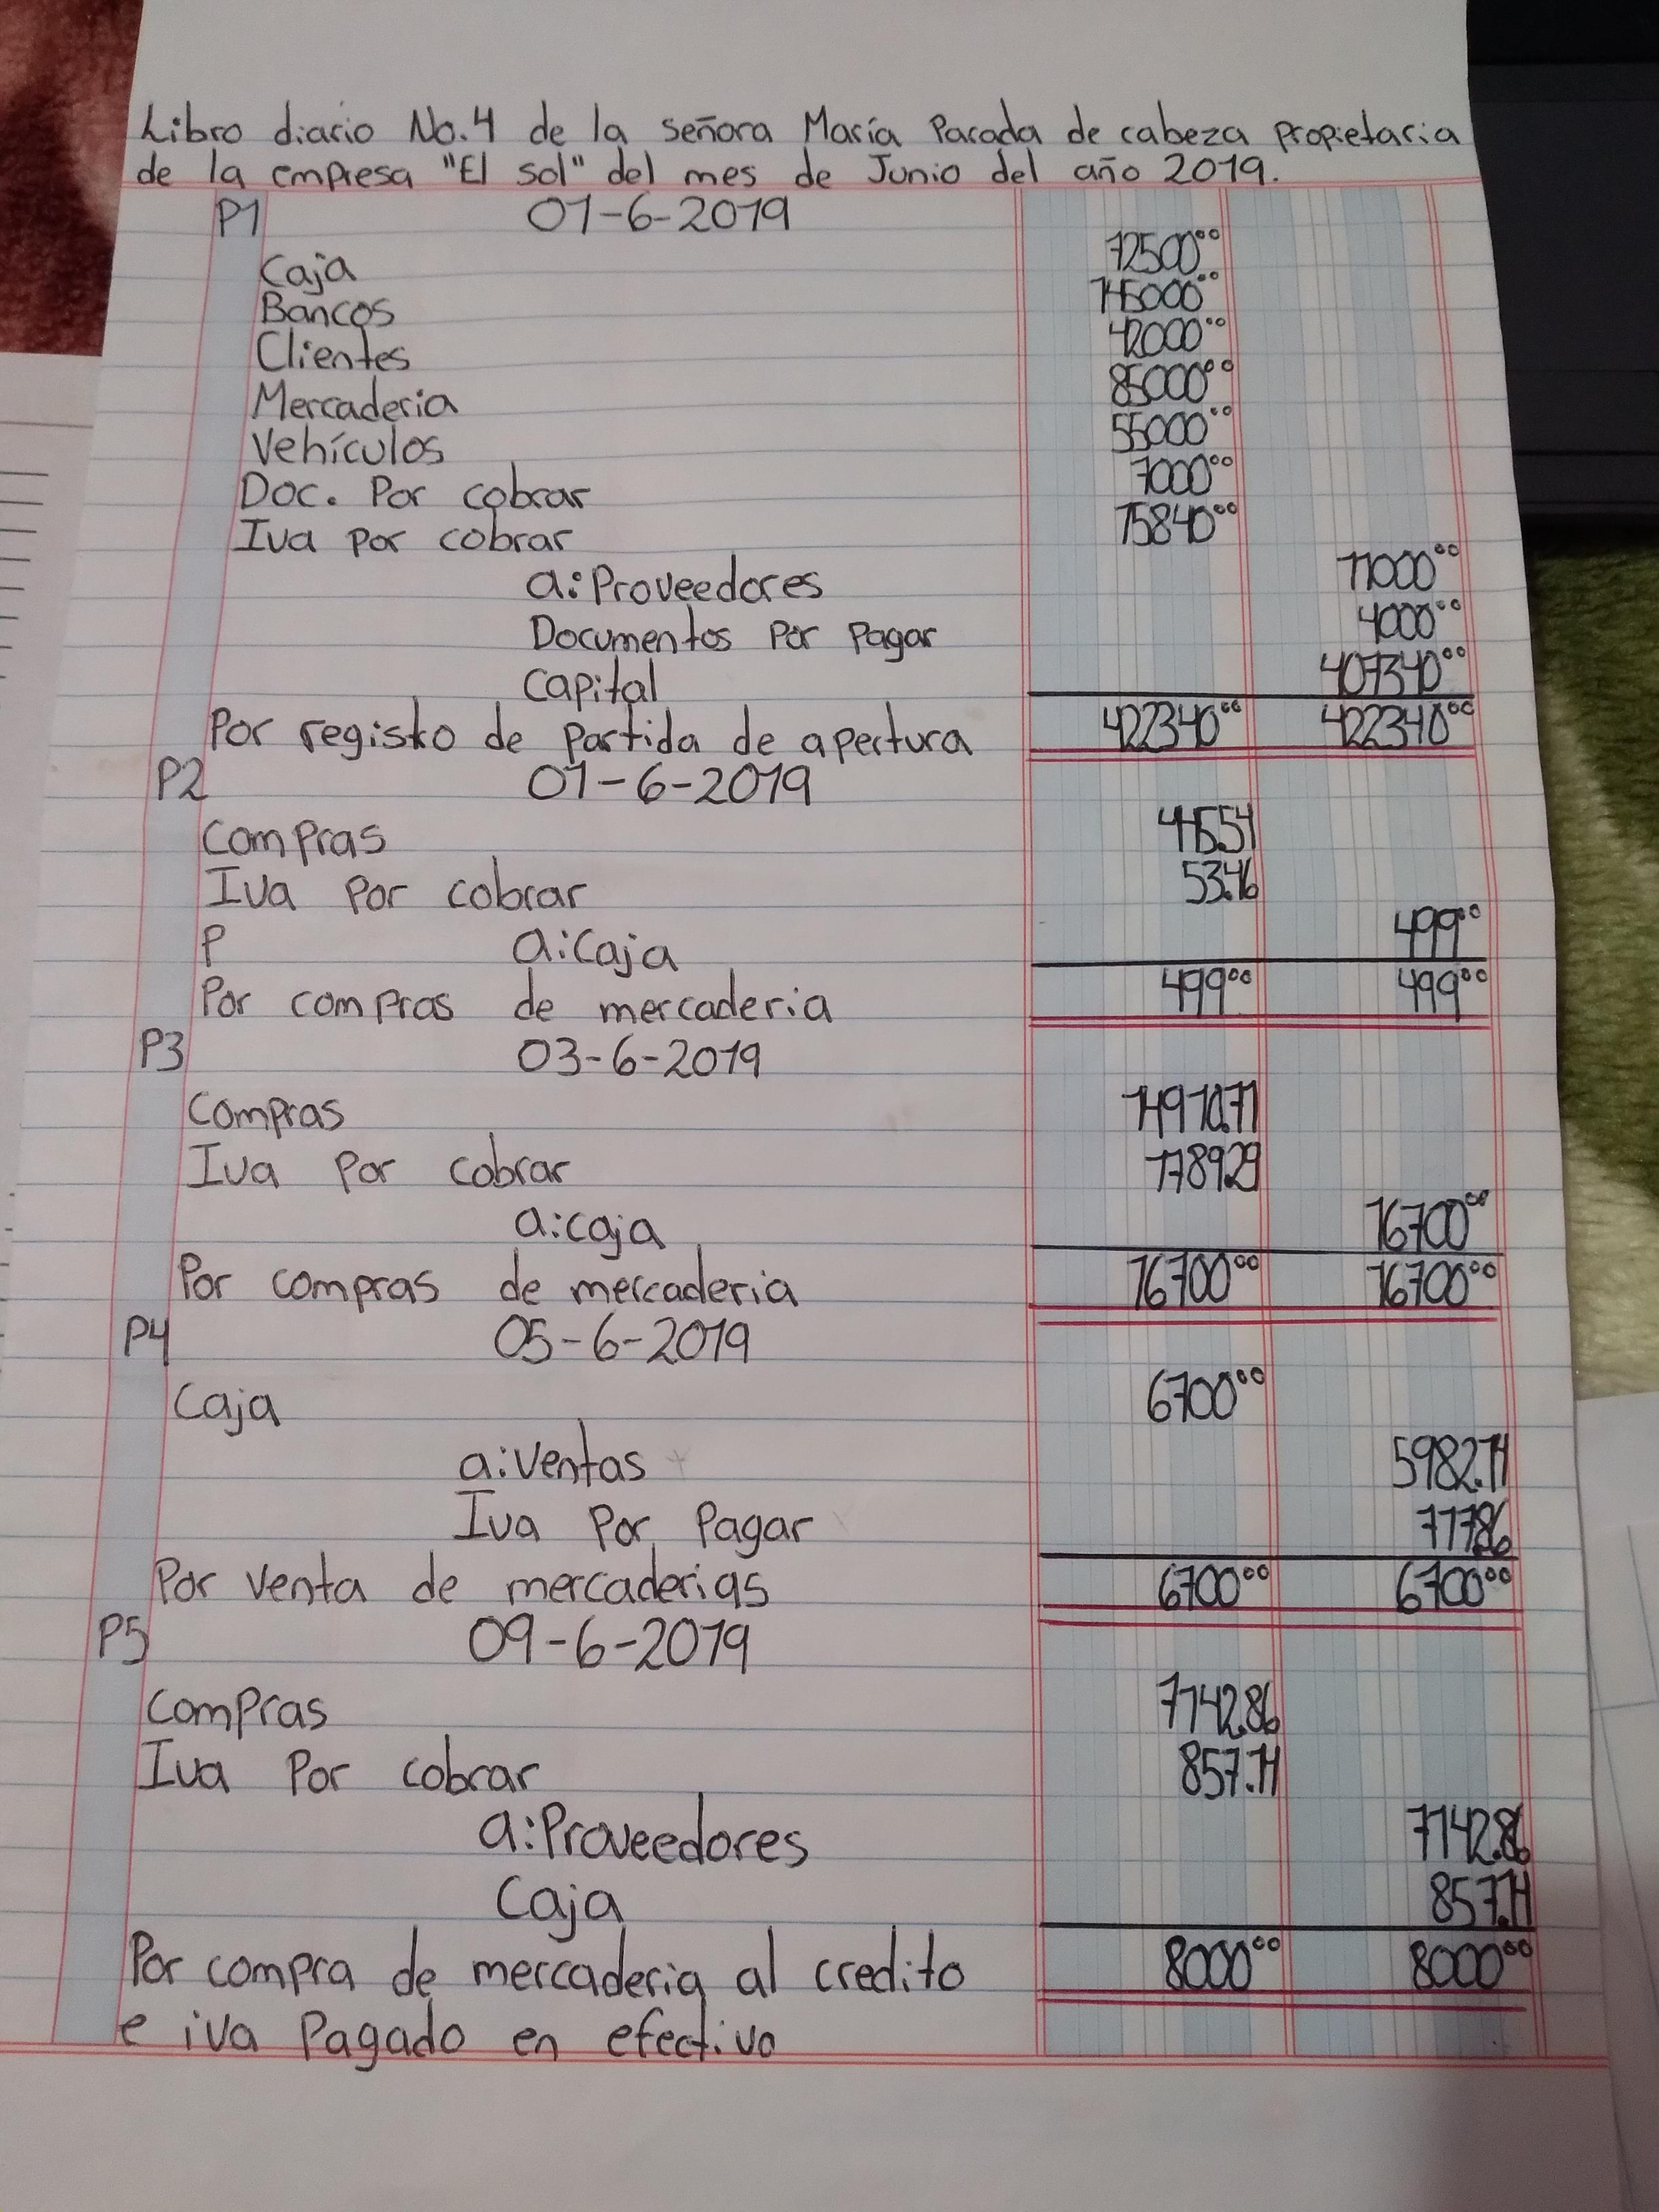 Libro diario No.4 de la señora María Parada de cabeza propietaria
de la empresa "El sol" del mes de Junio del año 2019.
P1 01-6-2019
Caja 72500⁰⁰
Bancos 145000⁰⁰
Clientes 42000⁰⁰
Mercaderia 85000⁰⁰
Vehículos 55000⁰⁰
Doc. Por cobrar 7000⁰⁰
Iva por cobrar 15840⁰⁰
a:Proveedores 11000⁰⁰
Documentos Por Pagar 4000⁰⁰
Capital 407340⁰⁰
Por registro de partida de apertura 422340⁰⁰ 422340⁰⁰
P2 01-6-2019
Compras 445.54
Iva Por cobrar 53.46
P a:Caja 499⁰⁰
Por compras de mercaderia 499⁰⁰ 499⁰⁰
P3 03-6-2019
Compras 14910.71
Iva Por cobrar 1789.29
a:caja 16700⁰⁰
Por compras de mercaderia 16700⁰⁰ 16700⁰⁰
P4 05-6-2019
Caja 6700⁰⁰
a:Ventas 5982.14
Iva Por Pagar 717.86
Por venta de mercaderias 6700⁰⁰ 6700⁰⁰
P5 09-6-2019
Compras 7142.86
Iva Por cobrar 857.14
a:Proveedores 7142.86
Caja 857.14
Por compra de mercaderia al credito 8000⁰⁰ 8000⁰⁰
e iva Pagado en efectivo